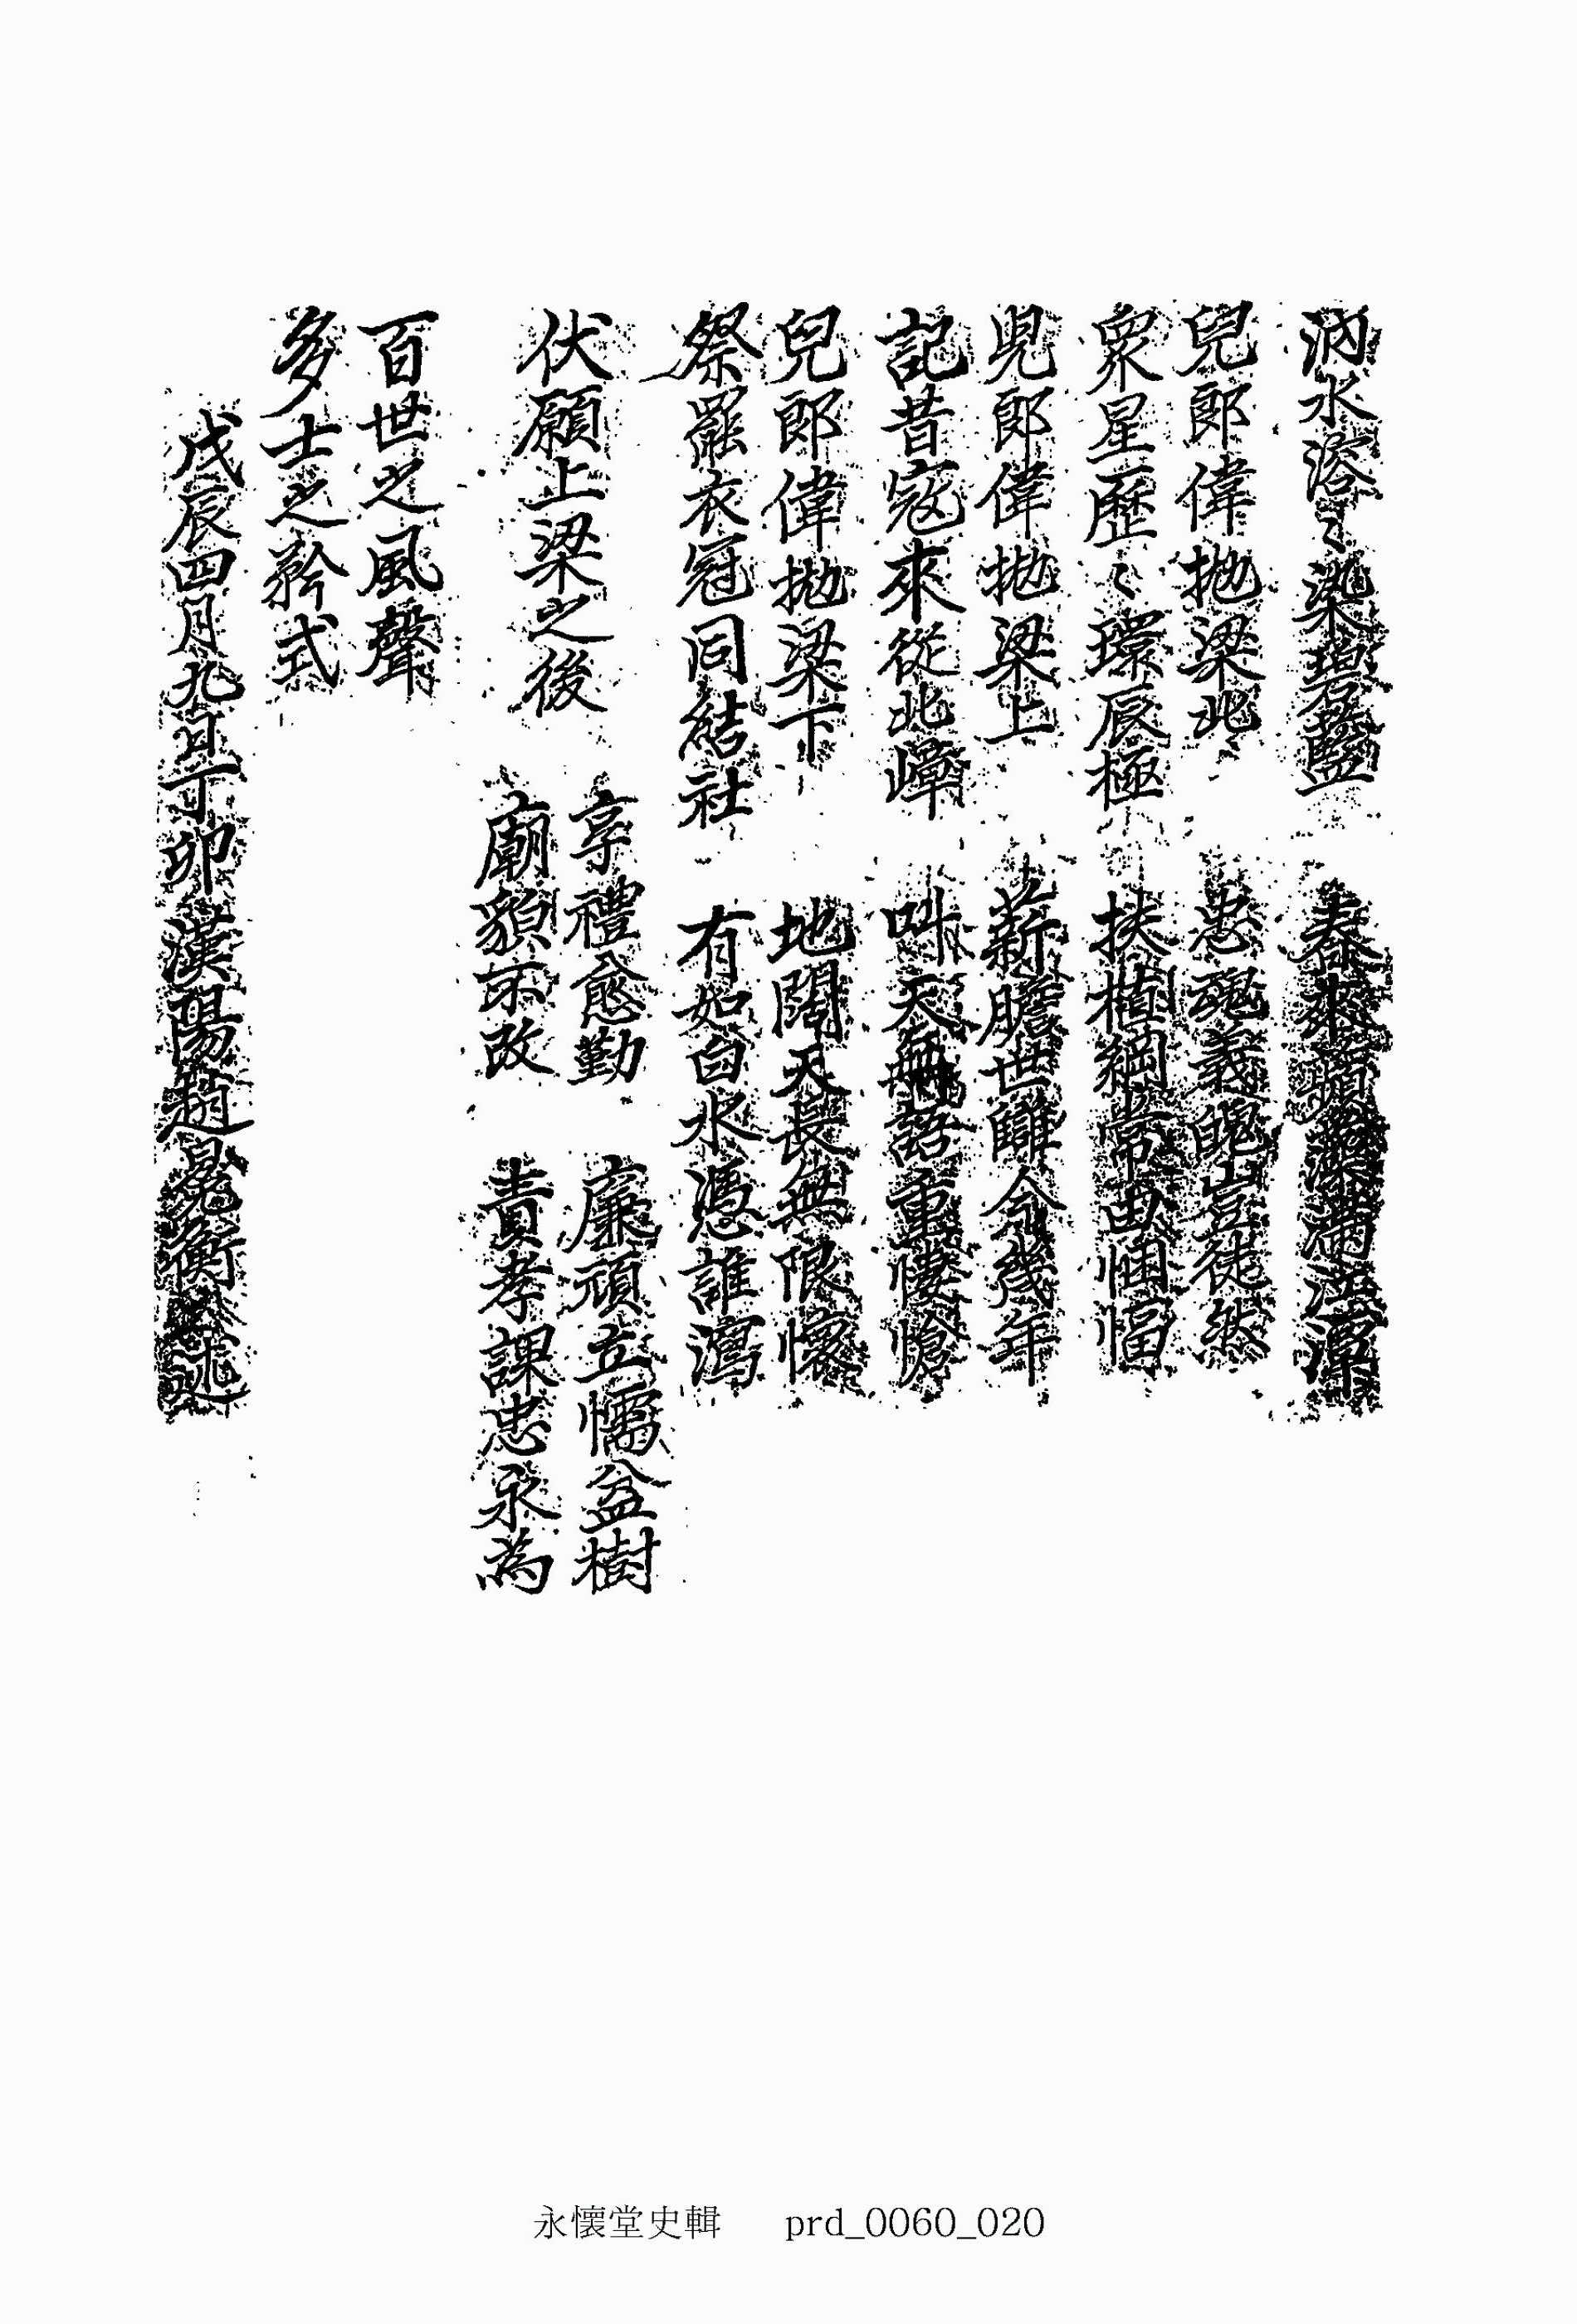 汭水溶〻染碧藍 春來蘋藻滿江潭
兒郎偉拋梁北 忠魂義魄豈徒然
衆星歷〻環辰極 扶植綱常由悃愊
兒郎偉拋梁上 薪膽世讎今幾年
記昔寇來從北嶂 叫天無語重悽愴
兒郎偉拋梁下 地闊天長無限懷
祭罷衣冠同結社 有如白水憑誰瀉
伏願上梁之後 享禮愈勤 廉頑立懦益樹
廟貌不改 責孝課忠永爲
百世之風聲
多士之矜式
戊辰四月九日丁卯漢陽趙冕衡 述
永懷堂史輯 prd_0060_020